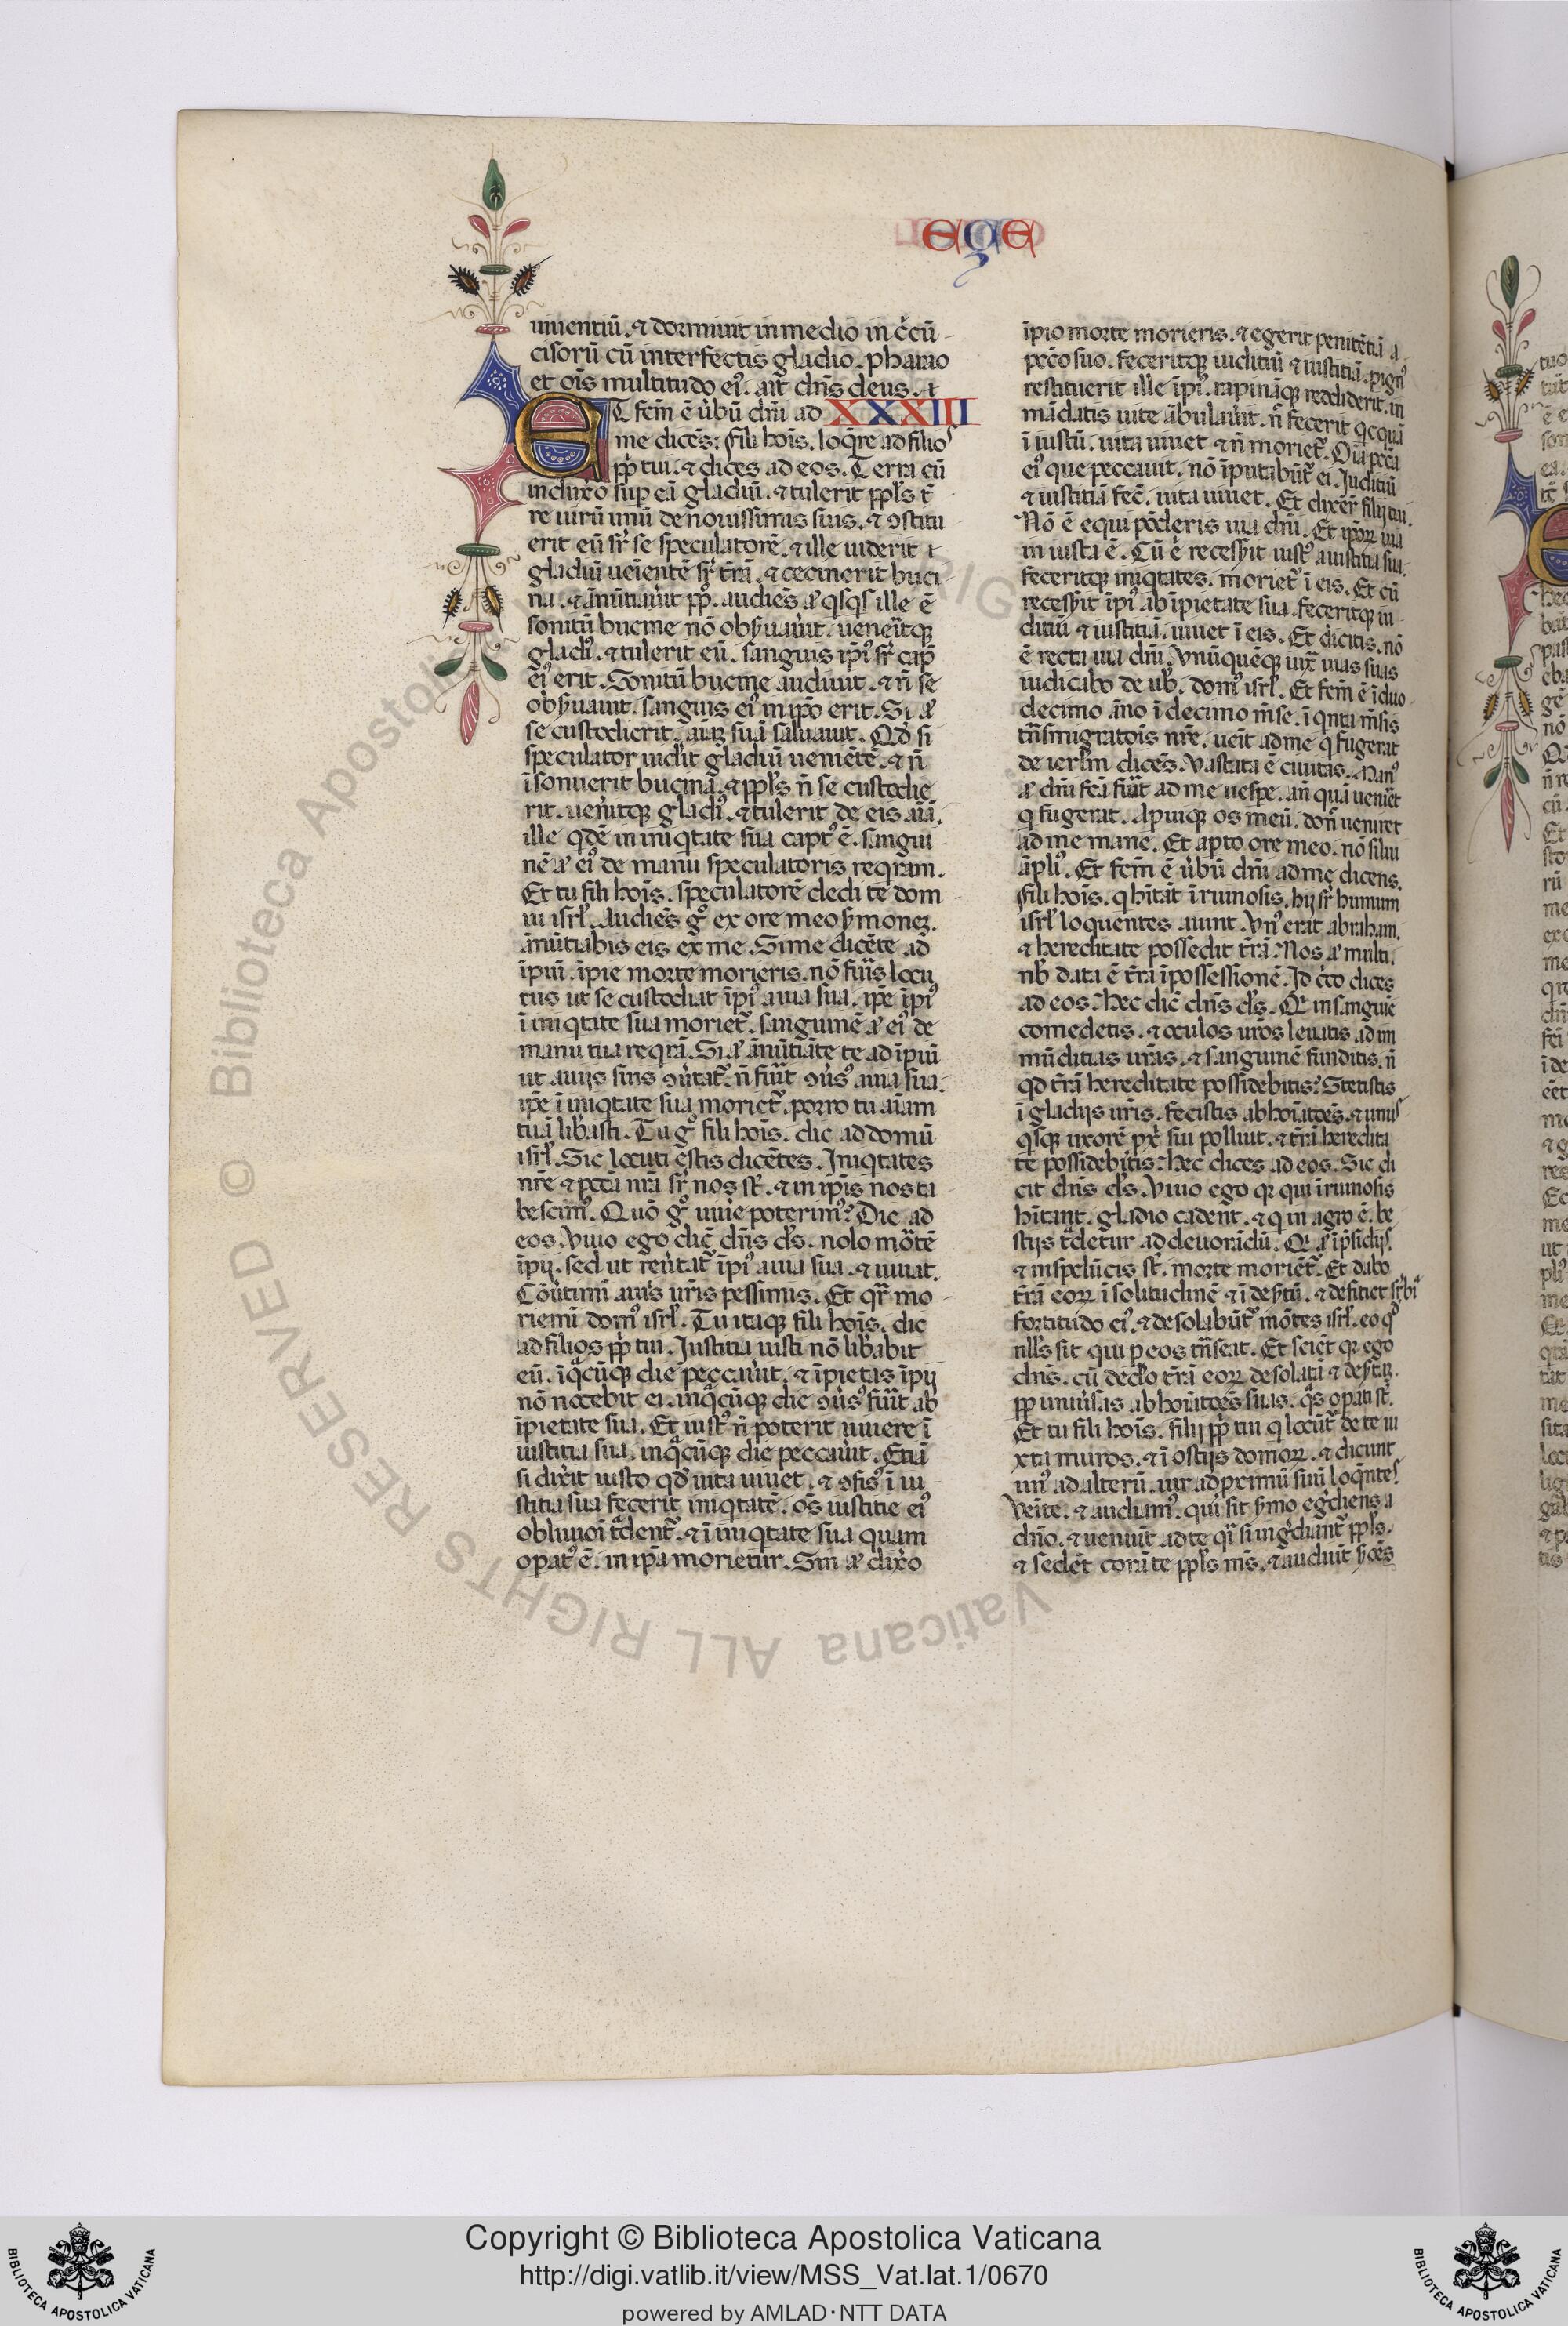 ege
uiuentiū. ⁊ dormiuit in medio in c̄cū
cisorū cū interfectis gladio. pharao
et oīs multitudo eiꝰ. ait dn̄s deus. ⁊
ET fc̄m ē u̇bū dn̄i ad XXXIII
me dicēs: fili hoīs. loq̄re ad filios
pp̄ tui. ⁊ dices ad eos. Terra cū
induxo sup eā gladiū. ⁊ tulerit ppl̄s t̄
re uirū unū de nouissimis suis. ⁊ ꝯstitu
erit eū sr̄ se speculatorē. ⁊ ille uiderit
gladiū ueīentē sr̄ t̄rā. ⁊ cecinerit buci
na. ⁊ ānūtiauit pp̄. audiēs aꝰ qsqs ille ē
sonitū bucine nō obẜuauit. uenēitqꝫ
gladiꝰ. ⁊ tulerit eū. sanguis ip̄iꝰ sr̄ cap̄
eiꝰ erit. Sonitū bucine audiuit. ⁊ n̄ se
obẜuauit. sanguis eiꝰ in ip̄o erit. Si aꝰ
se custodierit. aīaꝫ suā saluauit. Qđ si
speculator uidit gladiū ueniētē. ⁊ n̄
īsonuerit bucina. ⁊ ppl̄s n̄ se custodie
rit. uenitqꝫ gladiꝰ. ⁊ tulerit de eis aīā.
ille qdē in iniqtate sua captꝰ ē. sangui
nē aꝰ eiꝰ de manu speculatoris reqram.
Et tu fili hoīs. speculatorē dedi te dom
ui isrl̄. Audiēs gͦ ex ore meo ẜmoneꝫ.
ānūtiabis eis ex me. Si me dicēte ad
īpiū. īpie morte morieris. nō fuīs locu
tus ut se custodiat īpiꝰ a uia sua. ip̄e īpiꝰ
ī iniqtate sua moriet̄. sanguinē aꝰ eiꝰ de
manu tua reqrā. Si aꝰ ānūtiāte te ad īpiū
ut a uijs suis ꝯu̇tat̄. n̄ fuīt ꝯu̇sꝰ a uia sua.
ip̄e ī iniqtate sua moriet̄. porro tu aīam
tuā libasti. Tu gͦ fili hoīs. dic ad domū
isrl̄. Sic locuti estis dicētes. Iniqtates
nr̄e ⁊ pctā nr̄a sr̄ nos st̄. ⁊ in ip̄is nos ta
bescimꝰ. Quō gͦ uiue poterimꝰ? Dic ad
eos. Viuo ego dic̄ dn̄s ds̄. nolo mortē
īpij. sed ut reu̇tat̄ īpiꝰ a uia sua. ⁊ uiuat.
Cōu̇timī a uijs ur̄is pessimis. Et qr̄ mo
riemī domꝰ isrl̄. Tu itaqꝫ fili hoīs. dic
ad filios pp̄ tui. Iustitia iusti nō libabit
eū. ī qcūqꝫ die peccauit. ⁊ īpietas īpij
nō nocebit ei. in qcūqꝫ die ꝯu̇sꝰ fuīt ab
īpietate sua. Et iustꝰ n̄ poterit uiuere ī
iustitia sua. in qcūqꝫ die peccauit. Etiā
si dixit iusto qđ uita uiuet. ⁊ ꝯfisꝰ ī iu
stitia sua fecerit iniqtatē. oēs iustitie eiꝰ
obliuioī t̄dent̄. ⁊ ī iniqtate sua quam
opatꝰ ē. in ip̄a morietur. Sin aꝰ dixo
īpio morte morieris. ⁊ egerit penitētiā a
pecō suo. feceritqꝫ iudiciū ⁊ iustitiā. pignꝰ
restituerit ille īpiꝰ. rapināqꝫ reddiderit. in
mādatis uite ābulauit. n̄ fecerit qcquā
īiustū. uita uiuet ⁊ n̄ moriet̄. Oīa pctā
eiꝰ que peccauit. nō īputabūt̄ ei. Iudiciū
⁊ iustitiā fec̄. uita uiuet. Et dixēr filij tui.
Nō ē equi pōderis uia dn̄i. Et ip̄oꝝ uia
iniusta ē. Cū e̅ recesẜit iustꝰ a iustitia sua.
feceritqꝫ iniqtates. moriet̄ ī eis. Et cū
recesẜit īpiꝰ ab īpietate sua. feceritqꝫ iu
diciū ⁊ iustitiā. uiuet ī eis. Et dicitis. nō
ē recta uia dn̄i. Vnūquēqꝫ iux̄ uias suas
iudicabo de ub̄. domꝰ isrl̄. Et fc̄m ē ī duo
decimo āno ī decimo m̄se. ī qnta m̄sis
tn̄smigratōis nr̄e. ueīt ad me q fugerat
de ierlm̄ dicēs. Vastata ē ciuitas. Manꝰ
aꝰ dn̄i fcā fuāt ad me uespe. an̄ quā ueniēt
q fugerat. Apuitqꝫ os meū. don̄ ueniret
ad me mane. Et apto ore meo. nō silui
āpliꝰ. Et fc̄m ē u̇bū dn̄i ad me dicens.
fili hoīs. q hītāt ī ruinosis. hijs sr̄ humum
isrl̄ loquentes aiunt. Vnꝰ erat abraham.
⁊ hereditate possedit t̄rā: Nos aꝰ multi.
nb̄ data ē t̄ra ī possessionē. Id c̄co dices
ad eos: hec dic̄ dn̄s ds̄. Qꝛ in sanguīe
comedetis. ⁊ oculos ur̄os leuatis ad im
mūditias ur̄as. ⁊ sanguinē funditis. n̄
qđ t̄rā hereditate possidebitis? Stetistis
ī gladijs ur̄is. fecistis abhoīatōes. ⁊ unus
qsqꝫ uxorē px̄i sui polluit. ⁊ t̄rā heredita
te possidebitis: Hec dices ad eos. Sic di
cit dn̄s ds̄. Viuo ego qꝛ qui ī ruinosis
hītant. gladio cadent. ⁊ q in agro ē. be
stijs t̄detur ad deuorādū. Qꝛ aꝰ ip̄sidijs
⁊ in spelūcis st̄. morte moriēt̄. Et dabo
t̄rā eoꝝ ī solitudinē ⁊ ī deẜtū. ⁊ deficiet sr̄bi
fortitudo eiꝰ. ⁊ desolabūt̄ mōtes isrl̄. eo qꝰ
nlls̄ sit qui p eos tn̄seat. Et sciēt qꝛ ego
dn̄s. cū dedo t̄rā eoꝝ desolatā ⁊ deẜtā.
pp uniu̇sas abhoīatōes suas. qs opati st̄.
Et tu fili hoīs. filij pp̄ tui q locūt̄ de te iu
xta muros. ⁊ ī ostijs domoꝝ. ⁊ dicunt
unꝰ ad alterū. uir ad pximū suū loqntes
Veīte. ⁊ audiamꝰ. qui sit ẜmo egdiens a
dn̄o. ⁊ ueniūt ad te qi si ingdiant̄ ppl̄s.
⁊ sedēt corā te ppl̄s mꝰs. ⁊ audiūt ẜōes
© Biblioteca Apostolica Vaticana ALL RIGHTS RESERVED
Copyright © Biblioteca Apostolica Vaticana
http://digi.vatlib.it/view/MSS_Vat.lat.1/0670
powered by AMLAD·NTT DATA
BIBLIOTECA APOSTOLICA VATICANA
BIBLIOTECA APOSTOLICA VATICANA